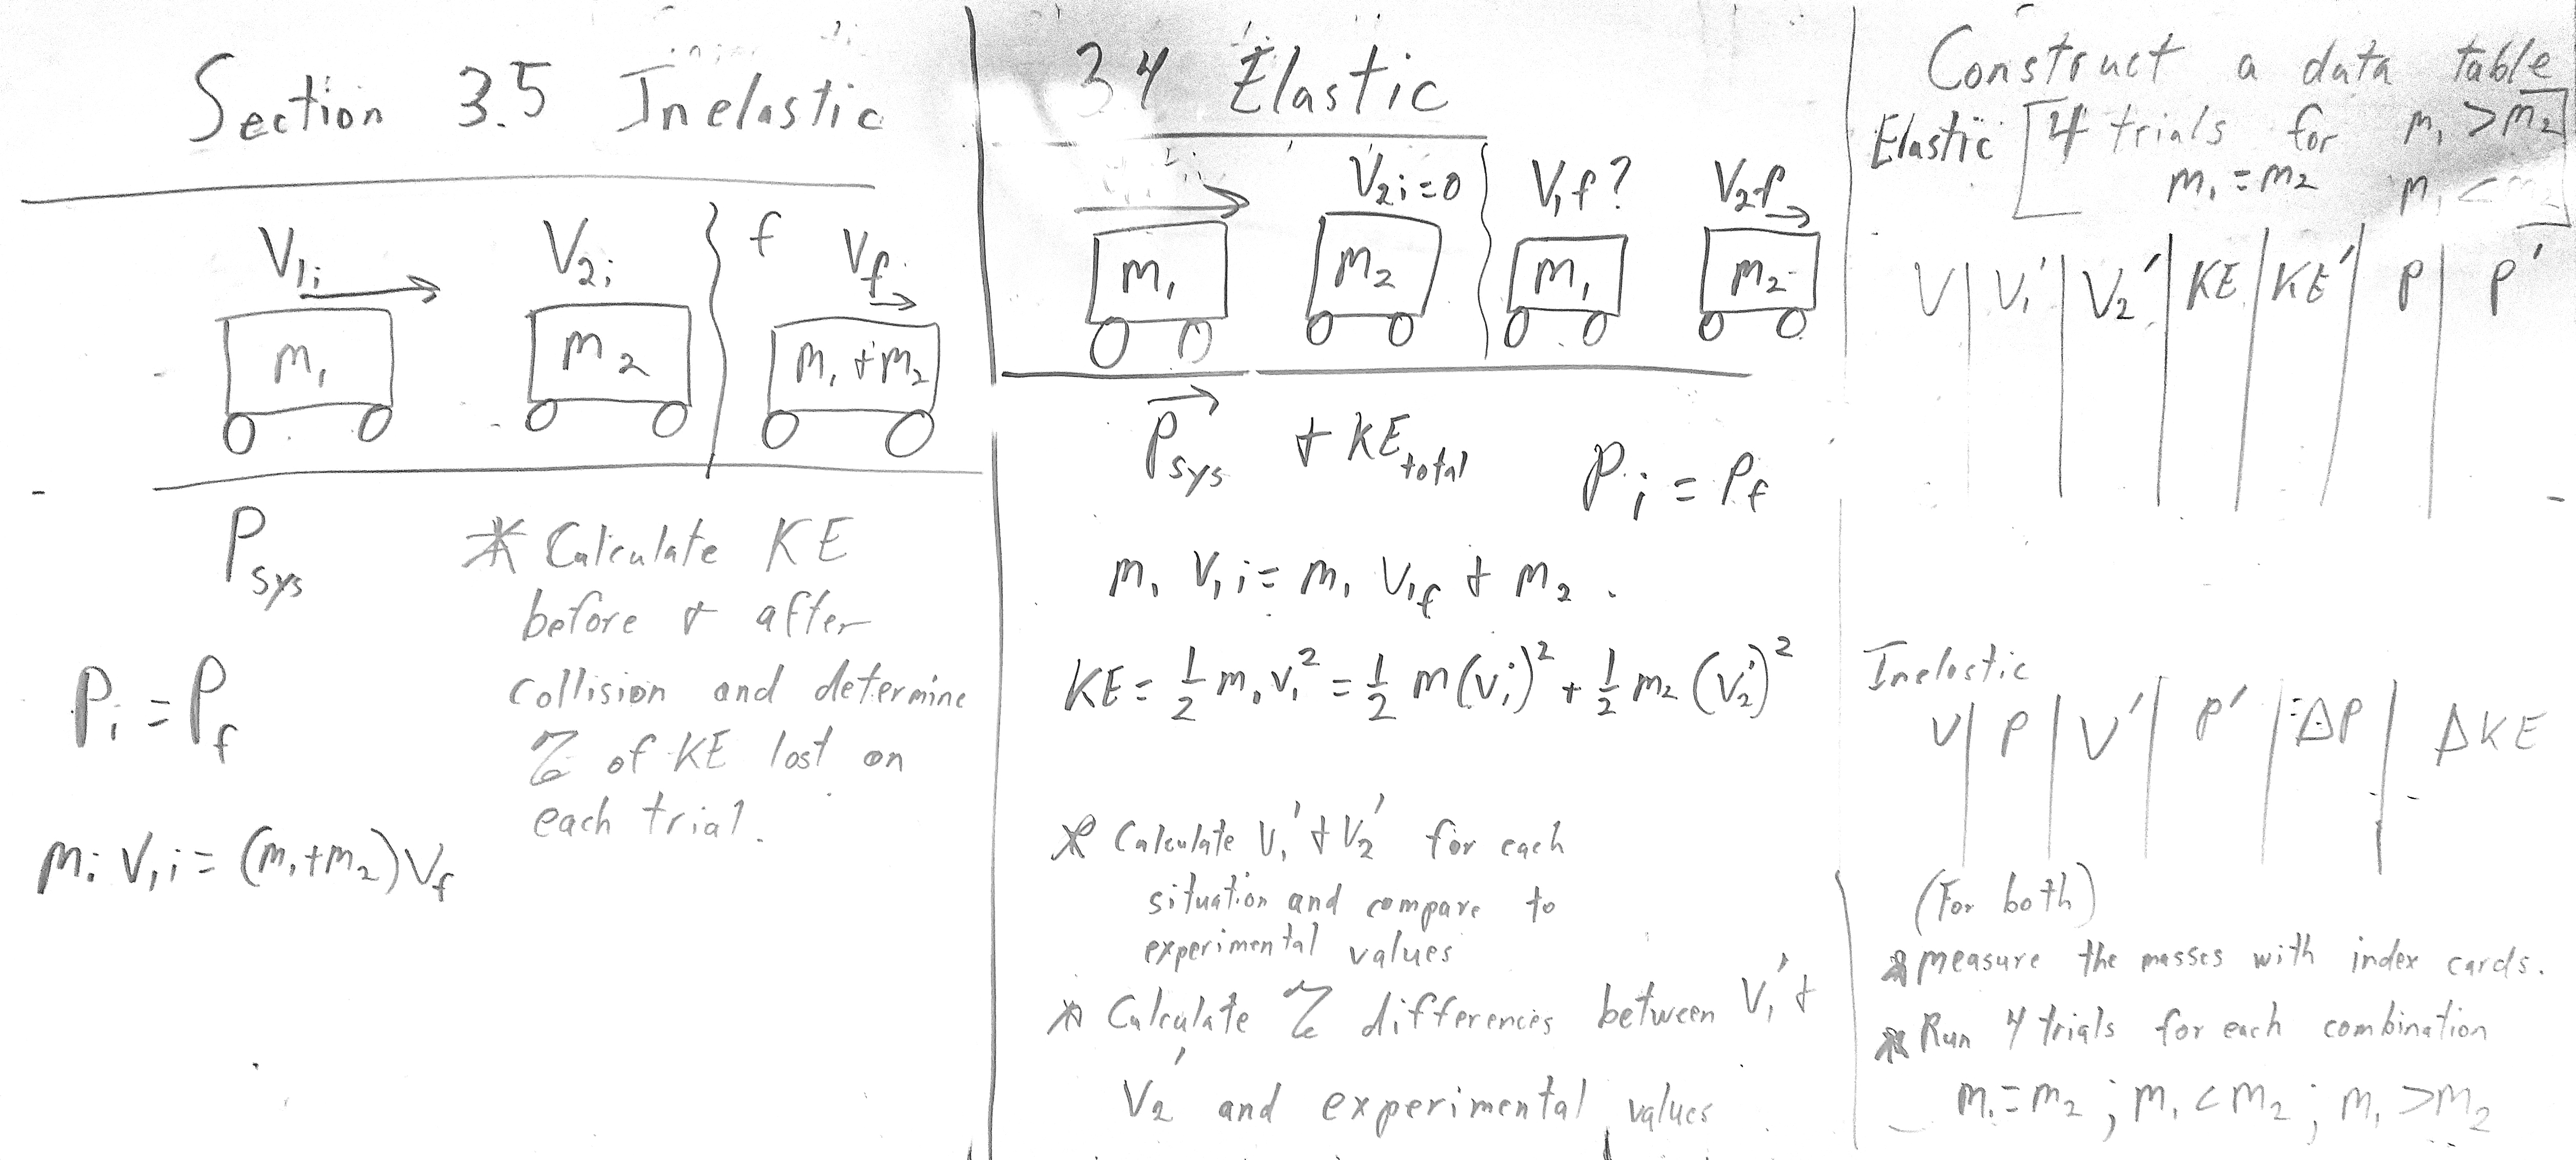 Section 3.5 Inelastic
V1i V2i f Vf
m1 m2 m1 + m2
Psys
* Calculate KE
before + after
collision and determine
% of KE lost on
each trial.
Pi = Pf
m1 V1i = (m1+m2)Vf
3.4 Elastic
V2i=0 V1f? V2f
m1 m2 m1 m2
Psys + KEtotal
Pi = Pf
m1 V1i = m1 V1f + m2
KE = 1/2 m1 v1² = 1/2 m(v1')² + 1/2 m2 (v2')²
* Calculate V1' + V2' for each
situation and compare to
experimental values
* Calculate % differences between V1' +
V2' and experimental values
Construct a data table
Elastic [4 trials for m1 > m2]
m1 = m2 m1 < m2
V | V1' | V2' | KE | KE' | P | P'
Inelastic
V | P | V' | P' | ΔP | ΔKE
(For both)
* measure the masses with index cards.
* Run 4 trials for each combination
m1 = m2 ; m1 < m2 ; m1 > m2